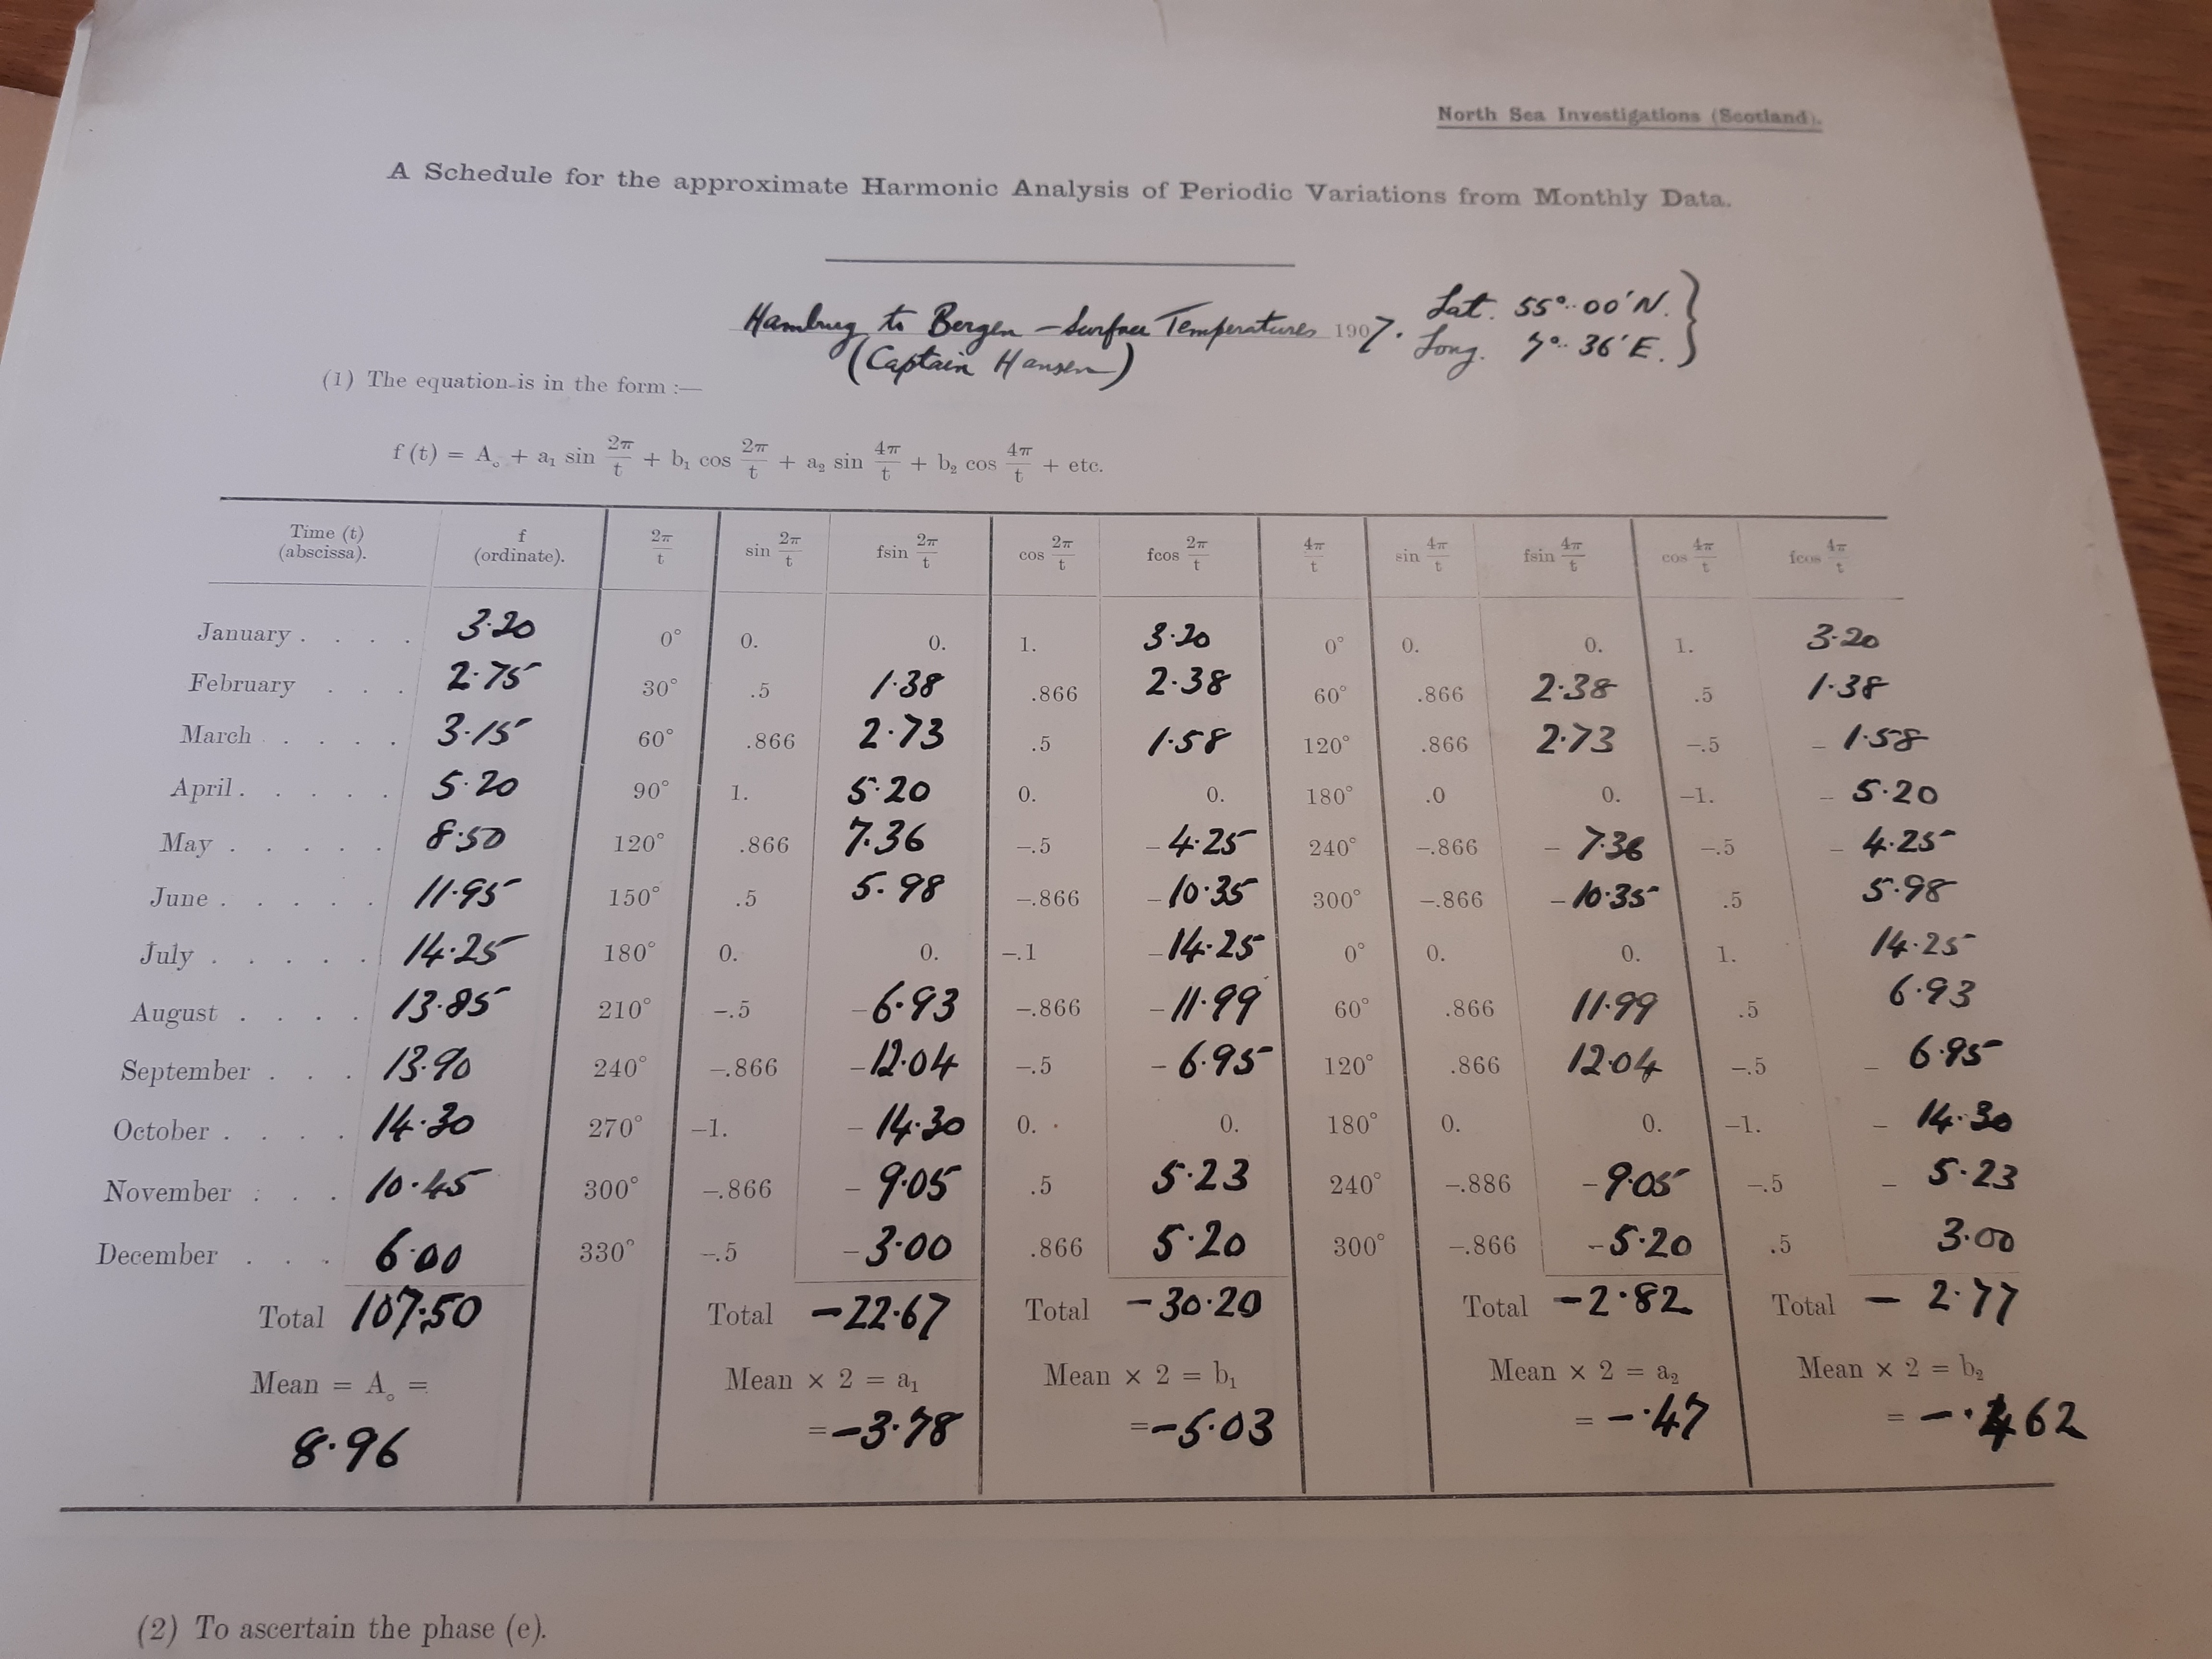 North Sea Investigations (Scotland).
A Schedule for the approximate Harmonic Analysis of Periodic Variations from Monthly Data.
Hamburg to Bergen – Surface Temperatures 1907. Lat. 55°..00'N. }
(Captain Hansen) Long. 7°.. 36'E.
(1) The equation is in the form :—
f (t) = A₀ + a₁ sin 2π/t + b₁ cos 2π/t + a₂ sin 4π/t + b₂ cos 4π/t + etc.
Time (t) (abscissa). f (ordinate). 2π/t sin 2π/t fsin 2π/t cos 2π/t fcos 2π/t 4π/t sin 4π/t fsin 4π/t cos 4π/t fcos 4π/t
January . . . . 3·20 0° 0. 0. 1. 3·20 0° 0. 0. 1. 3·20
February . . . 2·75 30° .5 1·38 .866 2·38 60° .866 2·38 .5 1·38
March . . . . 3·15 60° .866 2·73 .5 1·58 120° .866 2·73 –.5 – 1·58
April . . . . . 5·20 90° 1. 5·20 0. 0. 180° .0 0. –1. – 5·20
May . . . . . 8·50 120° .866 7·36 –.5 – 4·25 240° –.866 – 7·36 –.5 – 4·25
June . . . . . 11·95 150° .5 5·98 –.866 –10·35 300° –.866 –10·35 .5 5·98
July . . . . . 14·25 180° 0. 0. –.1 –14·25 0° 0. 0. 1. 14·25
August . . . . 13·85 210° –.5 –6·93 –.866 –11·99 60° .866 11·99 .5 6·93
September . . . 13·90 240° –.866 –12·04 –.5 – 6·95 120° .866 12·04 –.5 – 6·95
October . . . . 14·30 270° –1. – 14·30 0. 0. 180° 0. 0. –1. – 14·30
November . . . 10·45 300° –.866 – 9·05 .5 5·23 240° –.886 –9·05 –.5 – 5·23
December . . . 6·00 330° –.5 –3·00 .866 5·20 300° –.866 –5·20 .5 3·00
Total 107·50 Total –22·67 Total –30·20 Total –2·82 Total – 2·77
Mean = A₀ = Mean × 2 = a₁ Mean × 2 = b₁ Mean × 2 = a₂ Mean × 2 = b₂
8·96 = –3·78 = –5·03 = –·47 = –·462
(2) To ascertain the phase (e).